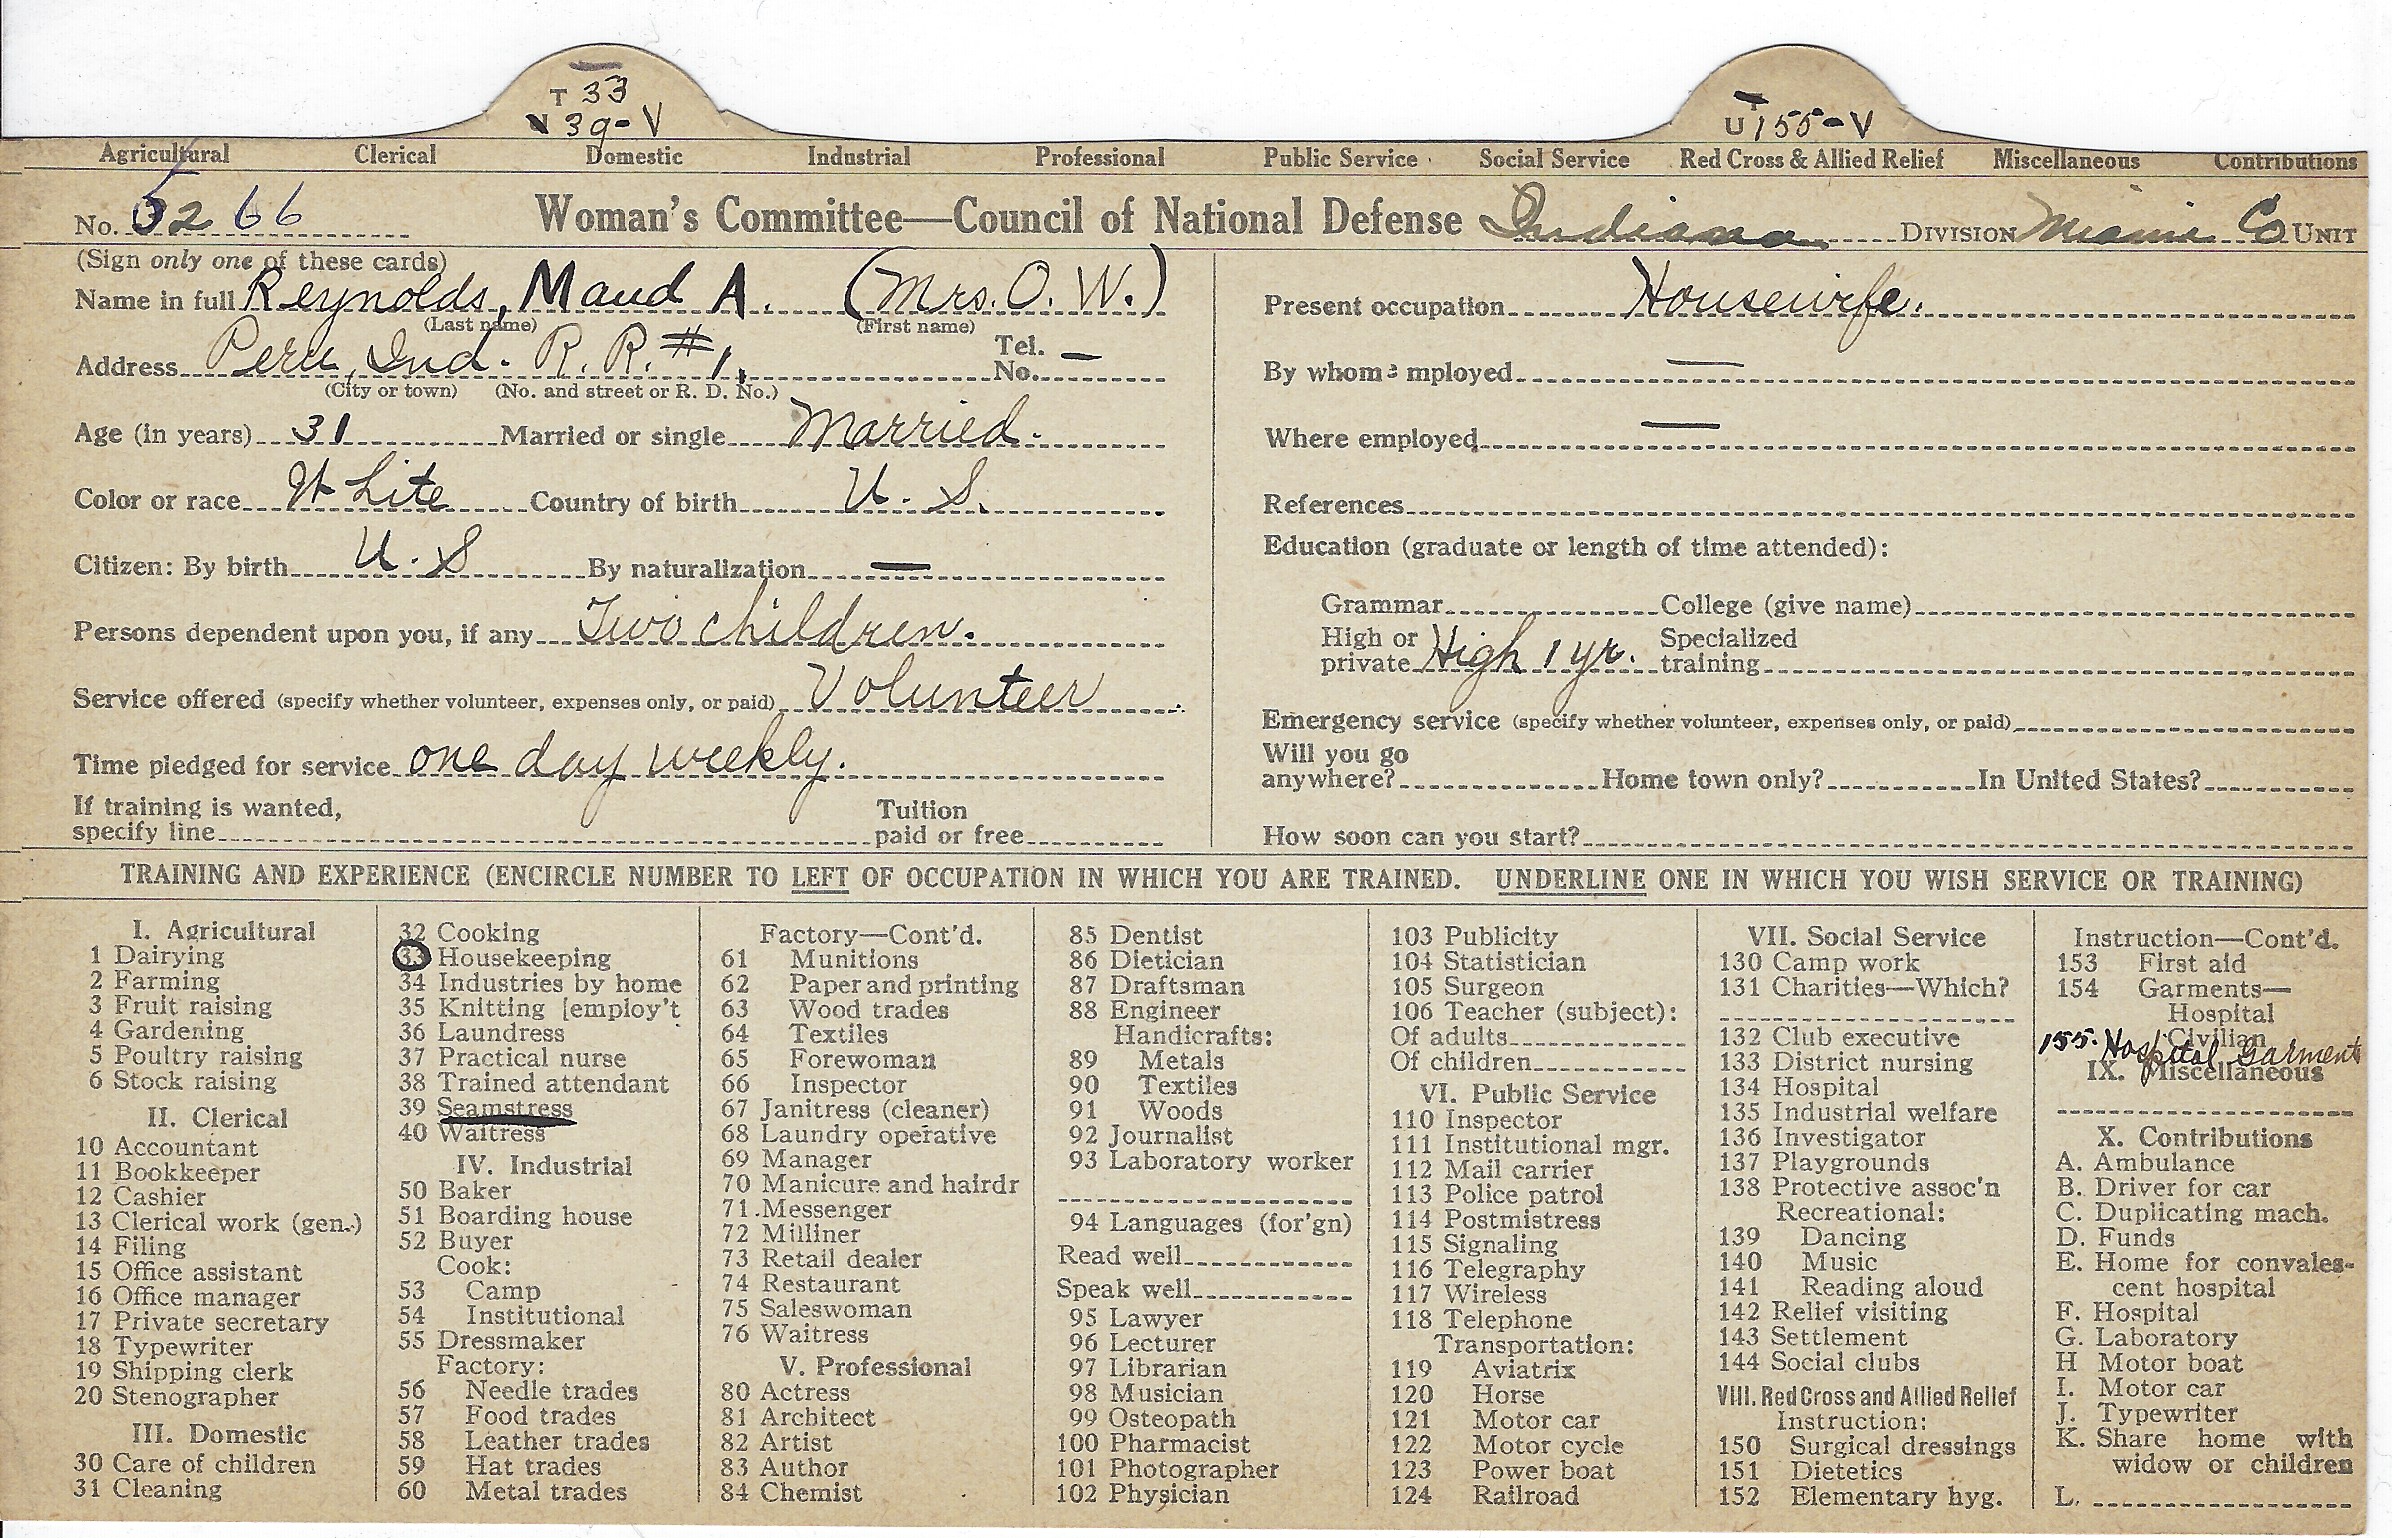 T 33
V 39-V
U 155-V
Agricultural Clerical Domestic Industrial Professional Public Service Social Service Red Cross & Allied Relief Miscellaneous Contributions
No. 5266 Woman's Committee—Council of National Defense Indiana DIVISION Miami Co UNIT
(Sign only one of these cards)
Name in full Reynolds, Maud A. (Mrs. O. W.)
(Last name) (First name)
Address Peru, Ind. R. R. #1. Tel. No. —
(City or town) (No. and street or R. D. No.)
Age (in years) 31 Married or single Married.
Color or race White Country of birth U. S.
Citizen: By birth U. S By naturalization —
Persons dependent upon you, if any Two children.
Service offered (specify whether volunteer, expenses only, or paid) Volunteer
Time pledged for service one day weekly.
If training is wanted,
specify line Tuition paid or free
Present occupation Housewife.
By whom employed —
Where employed —
References
Education (graduate or length of time attended):
Grammar College (give name)
High or private High 1 yr. Specialized training
Emergency service (specify whether volunteer, expenses only, or paid)
Will you go
anywhere? Home town only? In United States?
How soon can you start?
TRAINING AND EXPERIENCE (ENCIRCLE NUMBER TO LEFT OF OCCUPATION IN WHICH YOU ARE TRAINED. UNDERLINE ONE IN WHICH YOU WISH SERVICE OR TRAINING)
I. Agricultural
1 Dairying
2 Farming
3 Fruit raising
4 Gardening
5 Poultry raising
6 Stock raising
II. Clerical
10 Accountant
11 Bookkeeper
12 Cashier
13 Clerical work (gen.)
14 Filing
15 Office assistant
16 Office manager
17 Private secretary
18 Typewriter
19 Shipping clerk
20 Stenographer
III. Domestic
30 Care of children
31 Cleaning
32 Cooking
33 Housekeeping
34 Industries by home
35 Knitting [employ't
36 Laundress
37 Practical nurse
38 Trained attendant
39 Seamstress
40 Waitress
IV. Industrial
50 Baker
51 Boarding house
52 Buyer
Cook:
53 Camp
54 Institutional
55 Dressmaker
Factory:
56 Needle trades
57 Food trades
58 Leather trades
59 Hat trades
60 Metal trades
Factory—Cont'd.
61 Munitions
62 Paper and printing
63 Wood trades
64 Textiles
65 Forewoman
66 Inspector
67 Janitress (cleaner)
68 Laundry operative
69 Manager
70 Manicure and hairdr
71 Messenger
72 Milliner
73 Retail dealer
74 Restaurant
75 Saleswoman
76 Waitress
V. Professional
80 Actress
81 Architect
82 Artist
83 Author
84 Chemist
85 Dentist
86 Dietician
87 Draftsman
88 Engineer
Handicrafts:
89 Metals
90 Textiles
91 Woods
92 Journalist
93 Laboratory worker
94 Languages (for'gn)
Read well
Speak well
95 Lawyer
96 Lecturer
97 Librarian
98 Musician
99 Osteopath
100 Pharmacist
101 Photographer
102 Physician
103 Publicity
104 Statistician
105 Surgeon
106 Teacher (subject):
Of adults
Of children
VI. Public Service
110 Inspector
111 Institutional mgr.
112 Mail carrier
113 Police patrol
114 Postmistress
115 Signaling
116 Telegraphy
117 Wireless
118 Telephone
Transportation:
119 Aviatrix
120 Horse
121 Motor car
122 Motor cycle
123 Power boat
124 Railroad
VII. Social Service
130 Camp work
131 Charities—Which?
132 Club executive
133 District nursing
134 Hospital
135 Industrial welfare
136 Investigator
137 Playgrounds
138 Protective assoc'n
Recreational:
139 Dancing
140 Music
141 Reading aloud
142 Relief visiting
143 Settlement
144 Social clubs
VIII. Red Cross and Allied Relief
Instruction:
150 Surgical dressings
151 Dietetics
152 Elementary hyg.
Instruction—Cont'd.
153 First aid
154 Garments—
Hospital
Civilian
155. Hospital Garments
IX. Miscellaneous
X. Contributions
A. Ambulance
B. Driver for car
C. Duplicating mach.
D. Funds
E. Home for convales-
cent hospital
F. Hospital
G. Laboratory
H Motor boat
I. Motor car
J. Typewriter
K. Share home with
widow or children
L.